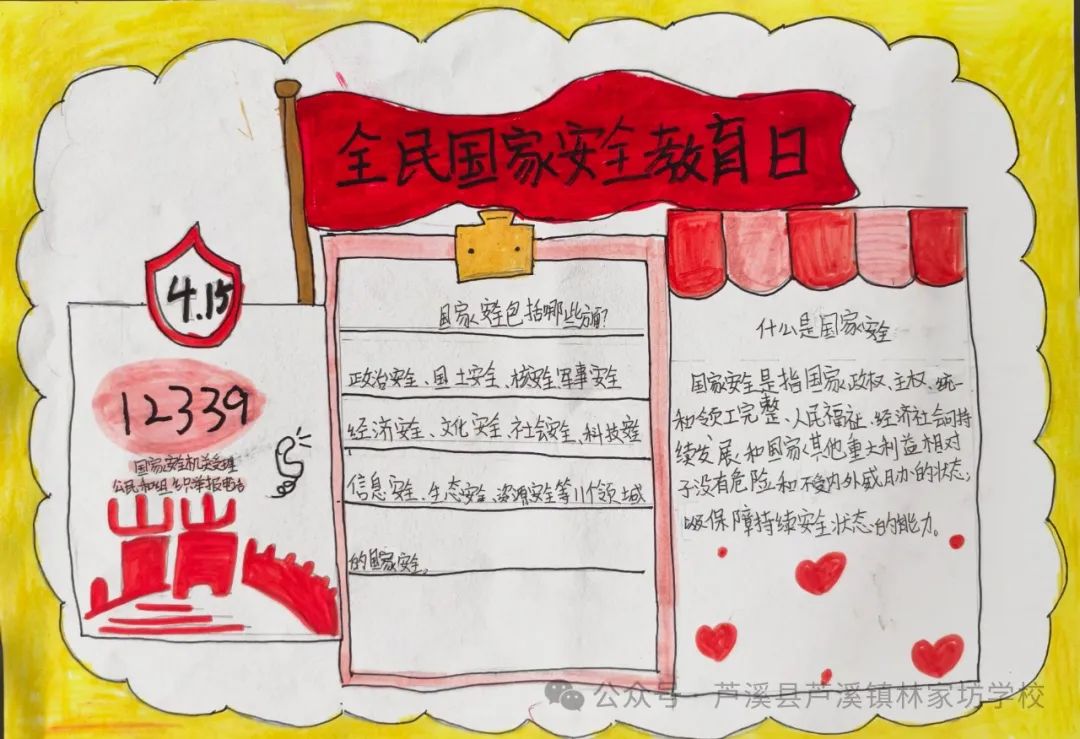 全民国家安全教育日
4.15
12339
国家安全机关受理
公民和组织举报电话
国家安全包括哪些方面?
政治安全、国土安全、核安全军事安全
经济安全、文化安全、社会安全、科技安全
信息安全、生态安全、资源安全等11个领域
的国家安全。
什么是国家安全
国家安全是指国家政权、主权、统一
和领工完整、人民福祉、经济社会可持
续发展和国家其他重大利益相对
于没有危险和不受内外威胁的状态;
以及保障持续安全状态的能力。
公众号·芦溪县芦溪镇林家坊学校